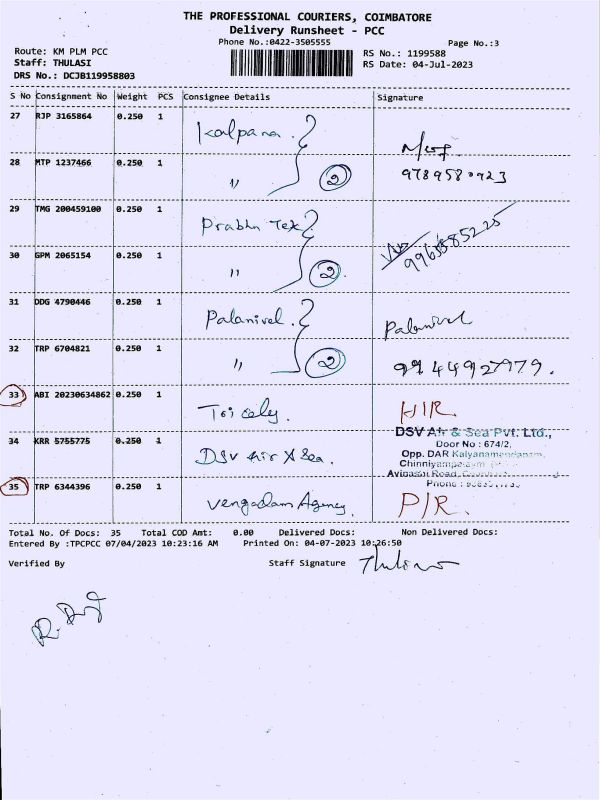 THE PROFESSIONAL COURIERS, COIMBATORE
Delivery Runsheet - PCC
Phone No.:0422-3505555
Page No.:3
Route: KM PLM PCC
RS No.: 1199588
Staff: THULASI
RS Date: 04-Jul-2023
DRS No.: DCJB119958803
S No Consignment No Weight PCS Consignee Details Signature
27 RJP 3165864 0.250 1 Kalpana
28 MTP 1237466 0.250 1 " 2 9789580923
29 TMG 200459100 0.250 1 Prabhu Tex
30 GPM 2065154 0.250 1 " 2
31 DDG 4790446 0.250 1 Palanivel. Palanivel
32 TRP 6704821 0.250 1 " 2 9944927979.
33 ABI 20230634862 0.250 1 H/R.
DSV Air & Sea Pvt. Ltd.,
Door No : 674/2,
34 KRR 5755775 0.250 1 DSV Air & Sea. Opp. DAR Kalyanamandapam,
Chinniyampalayam
Avinashi Road,
35 TRP 6344396 0.250 1 Vengadam Agency. P/R.
Phone :
Total No. Of Docs: 35 Total COD Amt: 0.00 Delivered Docs: Non Delivered Docs:
Entered By :TPCPCC 07/04/2023 10:23:16 AM Printed On: 04-07-2023 10:26:50
Verified By Staff Signature